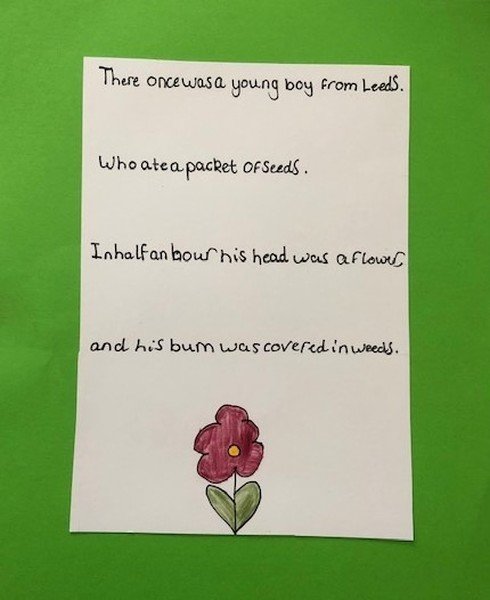 There once was a young boy from Leeds.
Who ate a packet of seeds.
In half an hour his head was a flower
and his bum was covered in weeds.